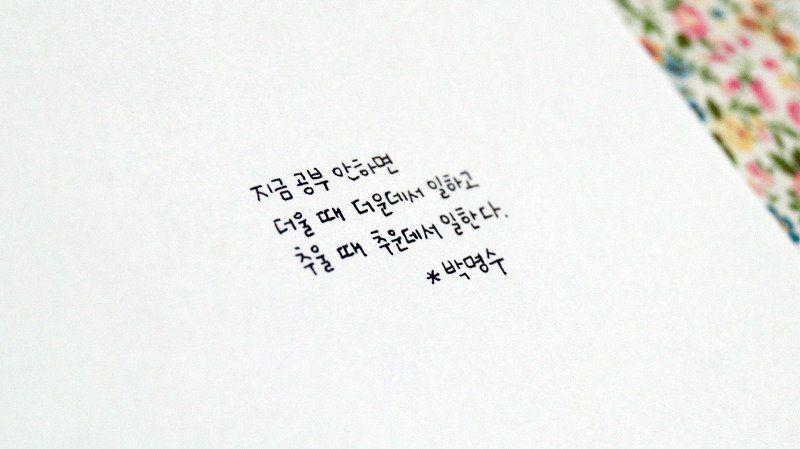 지금 공부 안하면
더울 때 더운데서 일하고
추울 때 추운데서 일한다.
*박명수